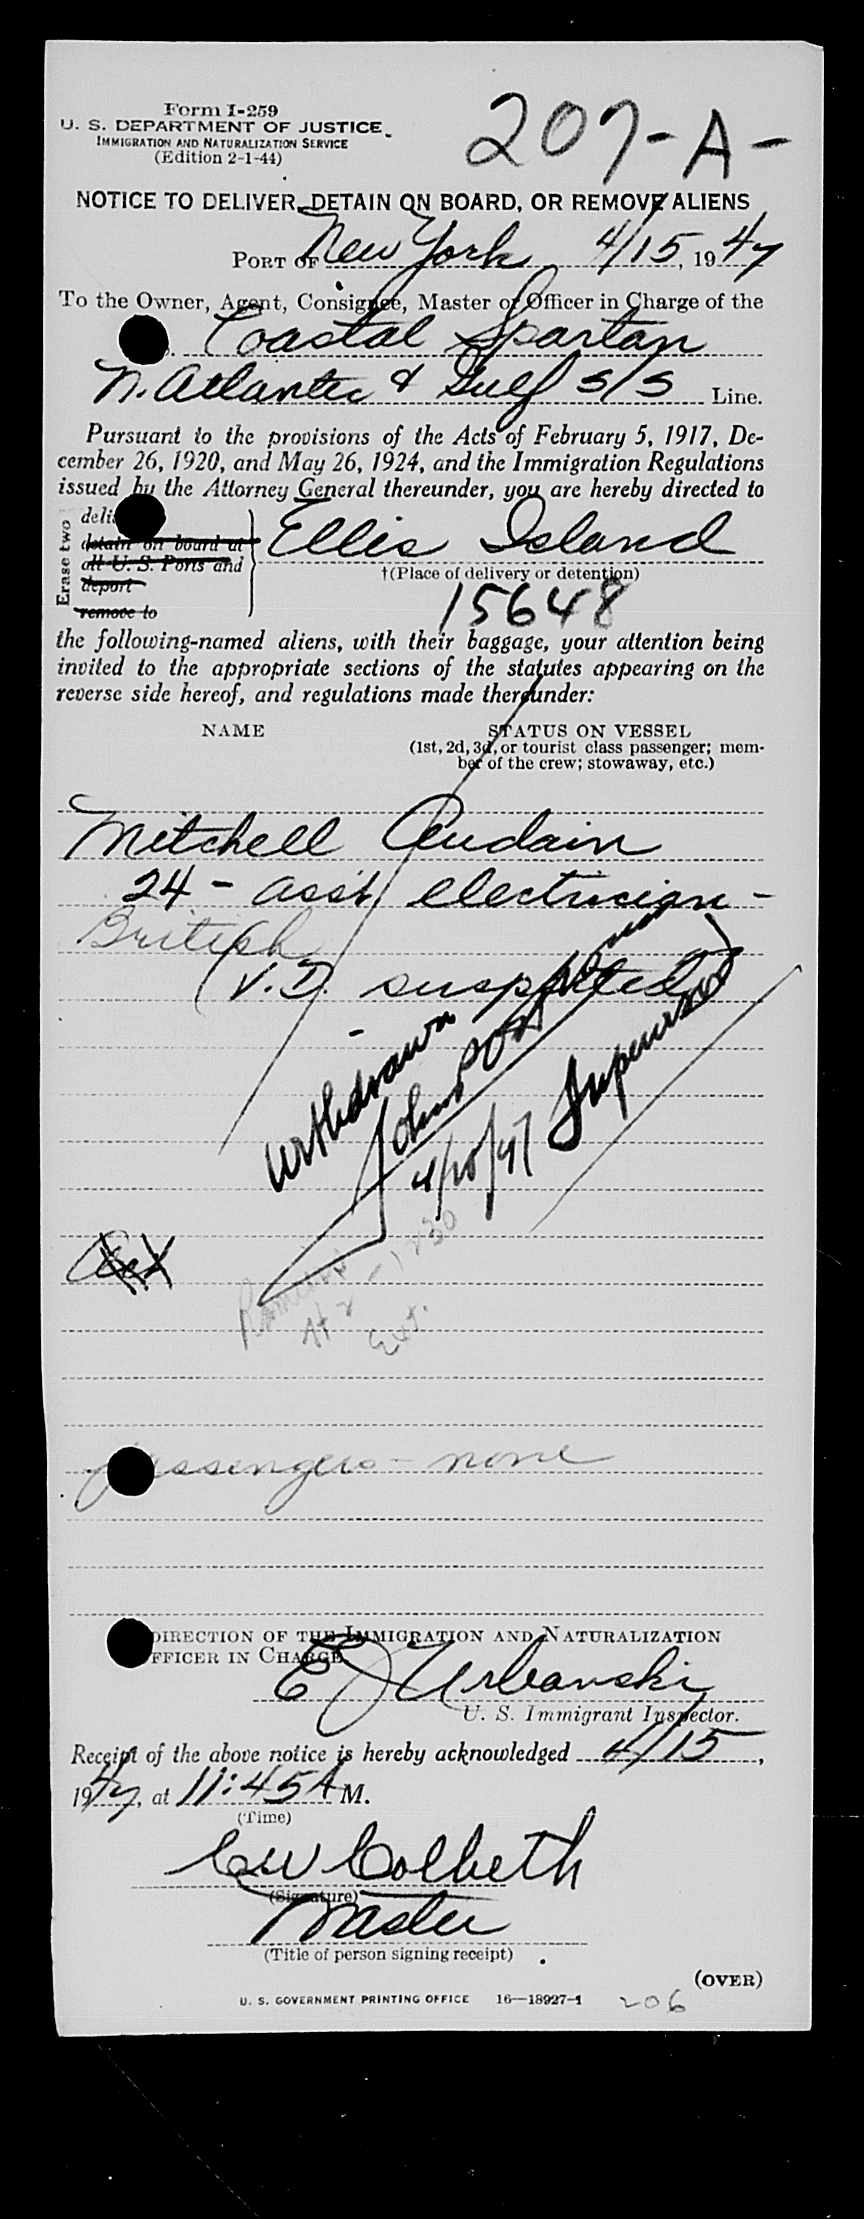 Form I-259
U. S. DEPARTMENT OF JUSTICE
IMMIGRATION AND NATURALIZATION SERVICE
(Edition 2-1-44)
207-A-
NOTICE TO DELIVER, DETAIN ON BOARD, OR REMOVE ALIENS
PORT OF New York 4/15, 1947
To the Owner, Agent, Consignee, Master or Officer in Charge of the
Coastal Spartan
N. Atlantic & Gulf S/S Line.
Pursuant to the provisions of the Acts of February 5, 1917, De-
cember 26, 1920, and May 26, 1924, and the Immigration Regulations
issued by the Attorney General thereunder, you are hereby directed to
Erase two
deli
detain on board at
all U. S. Ports and
deport
remove to
Ellis Island
†(Place of delivery or detention)
15648
the following-named aliens, with their baggage, your attention being
invited to the appropriate sections of the statutes appearing on the
reverse side hereof, and regulations made thereunder:
NAME STATUS ON VESSEL
(1st, 2d, 3d, or tourist class passenger; mem-
ber of the crew; stowaway, etc.)
Mitchell Audain
24 - asst electrician -
British
(V.D. suspected)
withdrawn
4/10/47 Supervisor
Ext.
passengers - none
DIRECTION OF THE IMMIGRATION AND NATURALIZATION
FFICER IN CHARGE
E J Urbanski
U. S. Immigrant Inspector.
Receipt of the above notice is hereby acknowledged 4/15,
1947, at 11:45 A M.
(Time)
CW Colbeth
(Signature)
Master
(Title of person signing receipt)
(OVER)
U. S. GOVERNMENT PRINTING OFFICE 16—18927-1 206